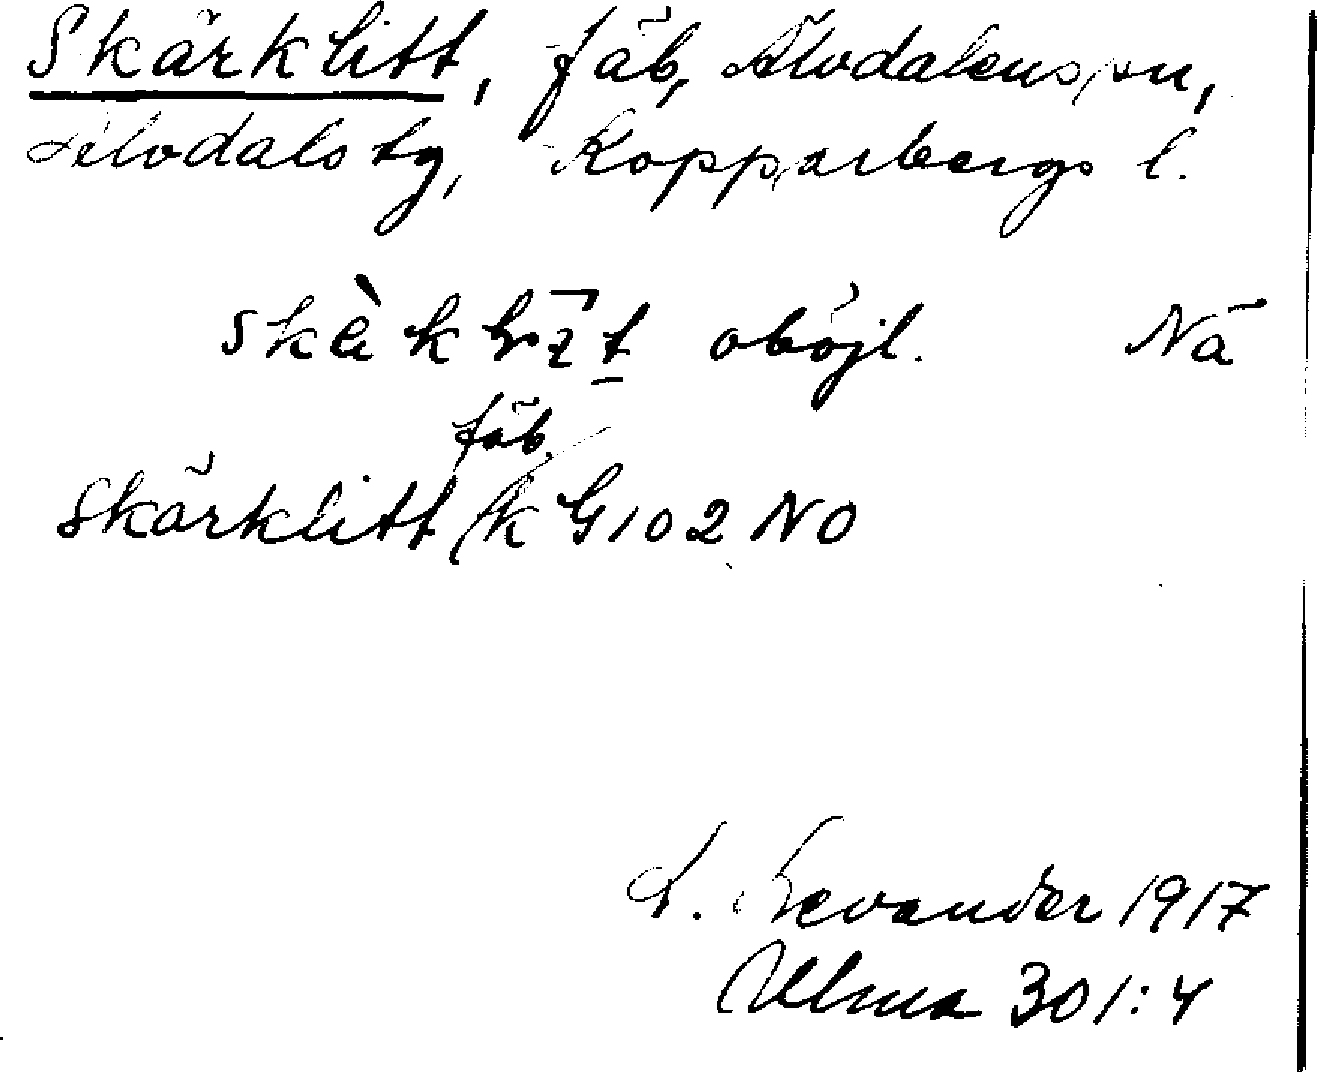 Skärklitt, fäb, Älvdalens sn,
Älvdals tg, Kopparbergs l.
oböjl. Nä
fäb.
Skärklitt k G102 NO
L. Levander 1917
Ulma 301:4